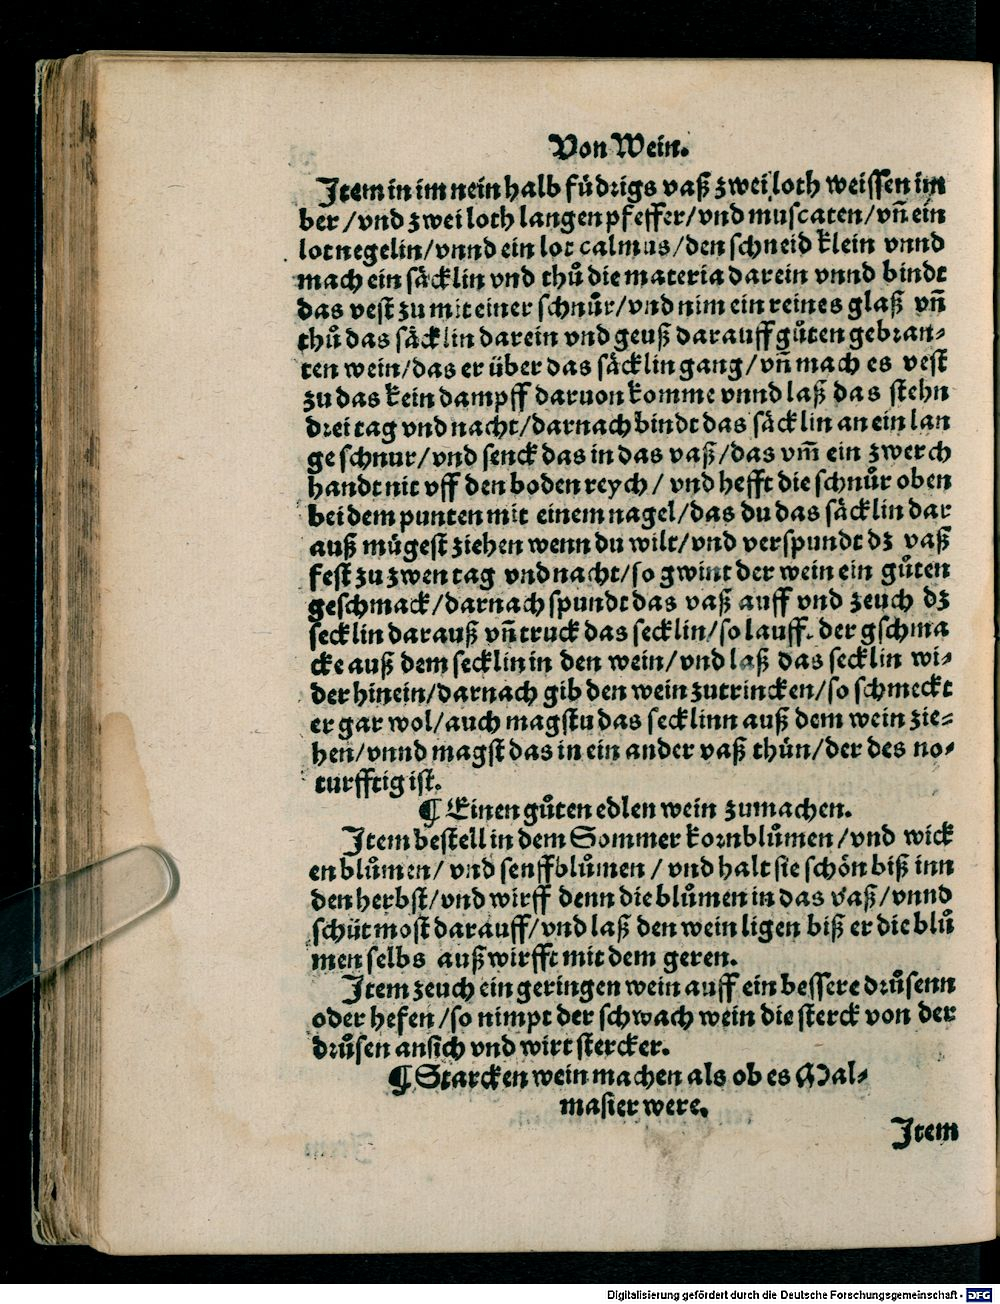 Von Wein.
Item in im nein halb fůdrigs vaß zwei loth weissen im
ber / vnd zwei loth langen pfeffer / vnd muscaten / vñ ein
lot negelin / vnnd ein lot calmus / den schneid klein vnnd
mach ein säcklin vnd thů die materia darein vnnd bindt
das vest zu mit einer schnůr / vnd nim ein reines glaß vñ
thů das säcklin darein vnd geuß darauff gůten gebran⸗
ten wein / das er über das säcklin gang / vñ mach es vest
zu das kein dampff daruon komme vnnd laß das stehn
drei tag vnd nacht / darnach bindt das säcklin an ein lan
ge schnur / vnd senck das in das vaß / das vm̃ ein zwerch
handt nit vff den boden reych / vnd hefft die schnůr oben
bei dem punten mit einem nagel / das du das säcklin dar
auß mügest ziehen wenn du wilt / vnd verspundt dz vaß
fest zu zwen tag vnd nacht / so gwint der wein ein gůten
geschmack / darnach spundt das vaß auff vnd zeuch dz
secklin darauß vñ truck das secklin / so lauff. der gschma
cke auß dem secklin in den wein / vnd laß das secklin wi⸗
der hinein / darnach gib den wein zutrincken / so schmeckt
er gar wol / auch magstu das secklinn auß dem wein zie⸗
hen / vnnd magst das in ein ander vaß thůn / der des no⸗
turfftig ist.
¶ Einen gůten edlen wein zumachen.
Item bestell in dem Sommer kornblůmen / vnd wick
en blůmen / vnd senffblůmen / vnd halt sie schön biß inn
den herbst / vnd wirff denn die blůmen in das vaß / vnnd
schüt most darauff / vnd laß den wein ligen biß er die blů
men selbs außwirfft mit dem geren.
Item zeuch ein geringen wein auff ein bessere drůsenn
oder hefen / so nimpt der schwach wein die sterck von der
drůsen ansich vnd wirt stercker.
¶ Starcken wein machen als ob es Mal⸗
masier were.
Item
Digitalisierung gefördert durch die Deutsche Forschungsgemeinschaft - DFG